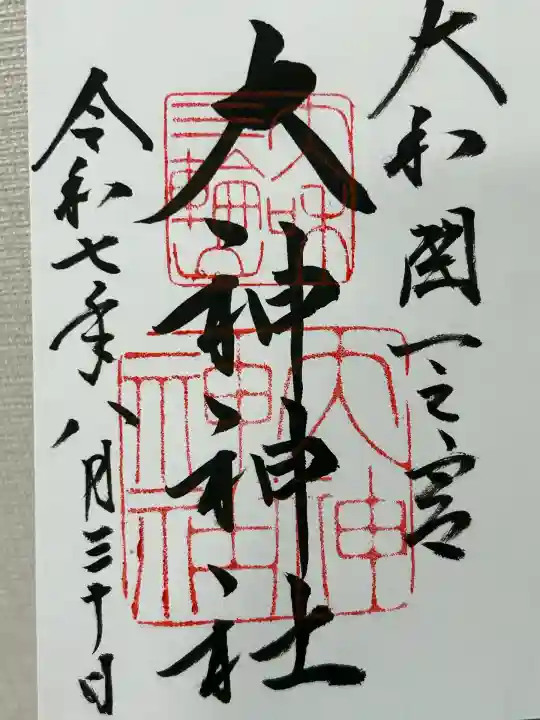 大和國一之宮
大神神社
令和七年八月三十日
大神
神社